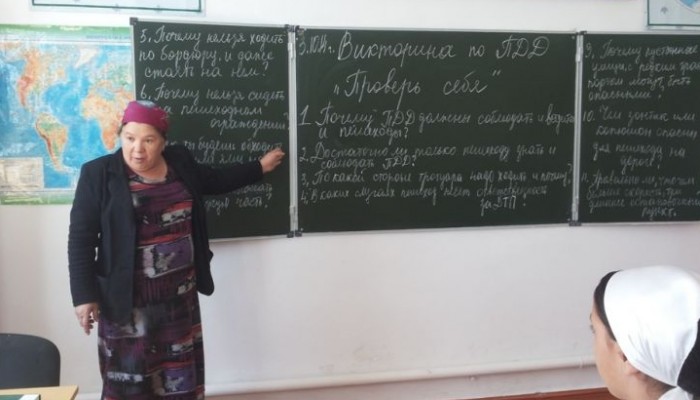 5. Почему нельзя ходить
по бордюру, и даже
стоять на нём?
6. Почему нельзя сидеть
на пешеходном
ограждении?
обходить
часть?
Викторина по ПДД
"Проверь себя"
1. Почему ПДД должен соблюдать и
и пешеходы?
2. Достаточно ли только пешеходу знать и
соблюдать ПДД?
3. По какой стороне тротуара надо ходить и почему?
4. В каких случаях пешеход несёт ответственность
за ДТП?
9. Почему пустынная
улица, с редким
могут быть
опасными?
10. Чем зонтик или
капюшон опасны
для пешехода на
дороге?
11.
пункт.